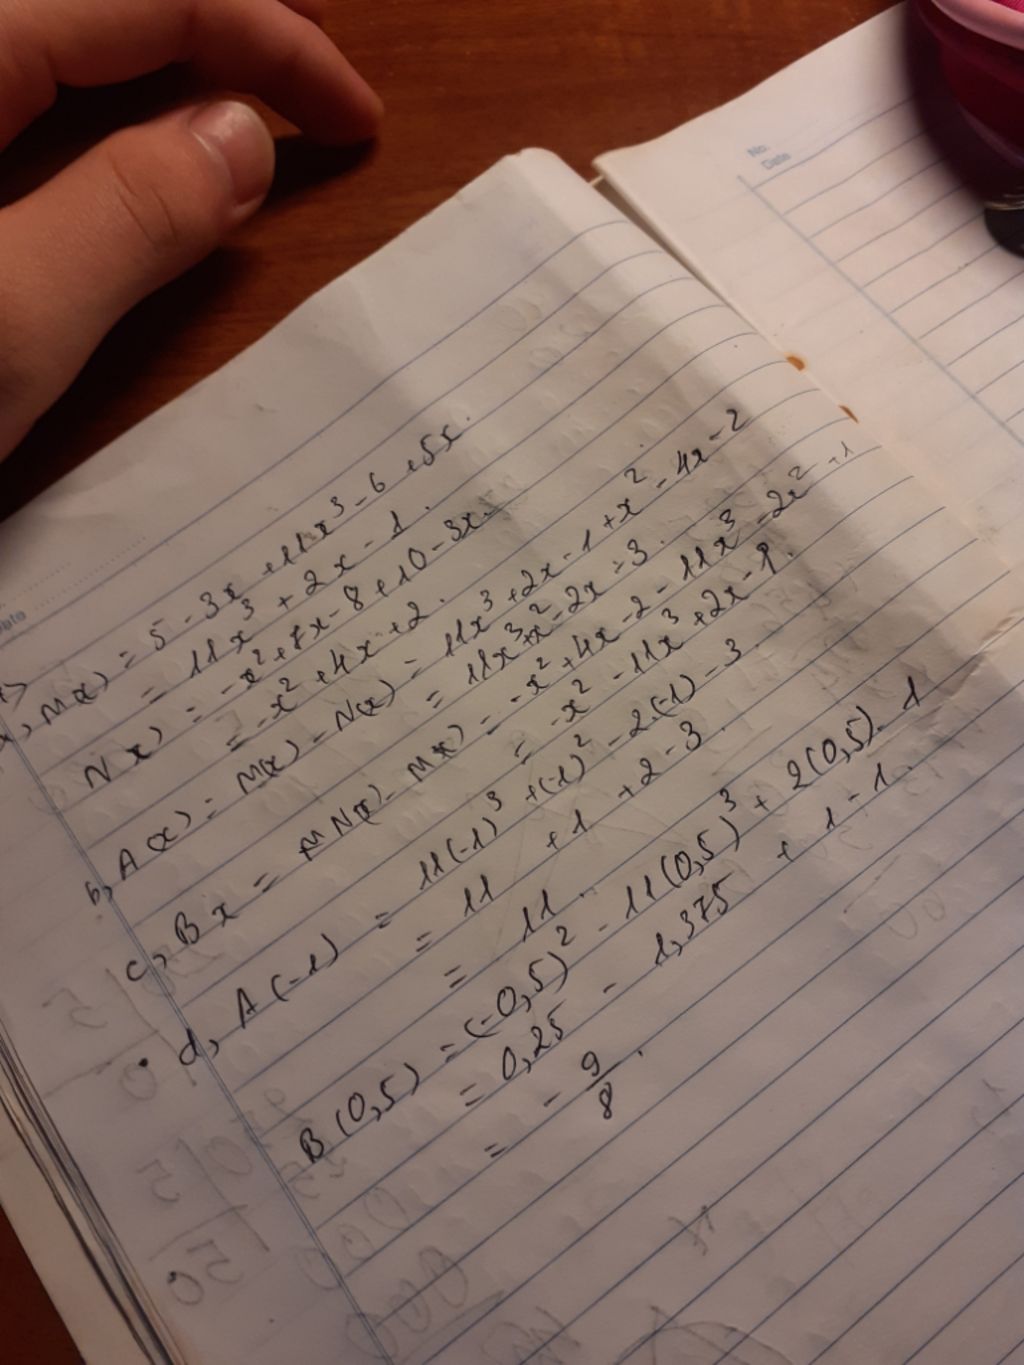 No.
Date
Date
1>
a, M(x) = 5 - 3x + 11x³ - 6 + 5x.
= 11x³ + 2x - 1.
N x) = -x² + 7x - 8 + 10 - 3x.
= -x² + 4x + 2.
b, A(x) = M(x) - N(x) = 11x³ + 2x - 1 + x² - 4x - 2
= 11x³ + x² - 2x - 3.
c, B x = N(x) - M(x) = -x² + 4x - 2 - 11x³ - 2x² + 1
= -x² - 11x³ + 2x - 1.
d, A(-1) = 11(-1)³ + (-1)² - 2.(-1) - 3.
= 11 + 1 + 2 - 3.
= 11.
B(0,5) = (-0,5)² - 11(0,5)³ + 2(0,5) - 1
= 0,25 - 1,375 + 1 - 1.
= - 9/8.